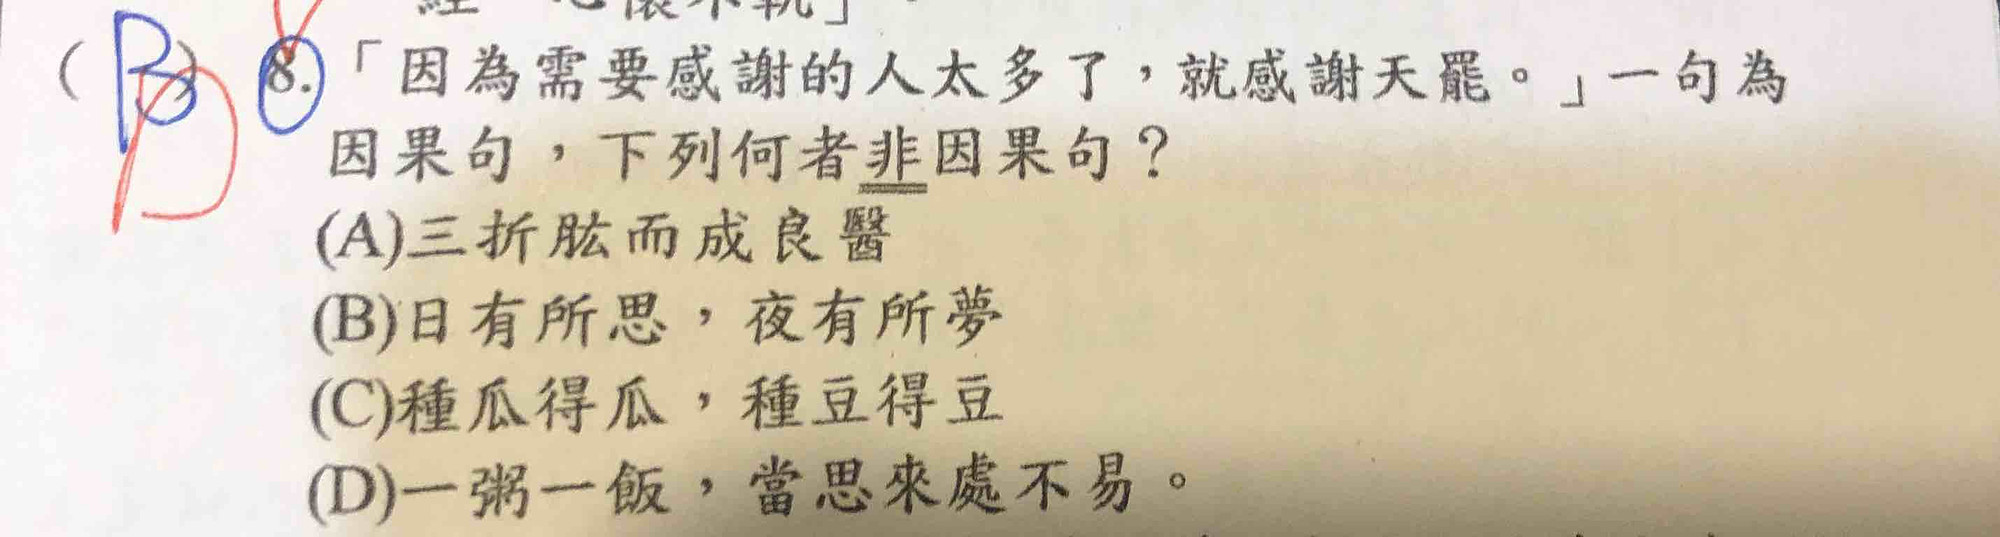 心懷不軌」。
( B ) 8.「因為需要感謝的人太多了，就感謝天罷。」一句為
D
因果句，下列何者非因果句？
(A)三折肱而成良醫
(B)日有所思，夜有所夢
(C)種瓜得瓜，種豆得豆
(D)一粥一飯，當思來處不易。